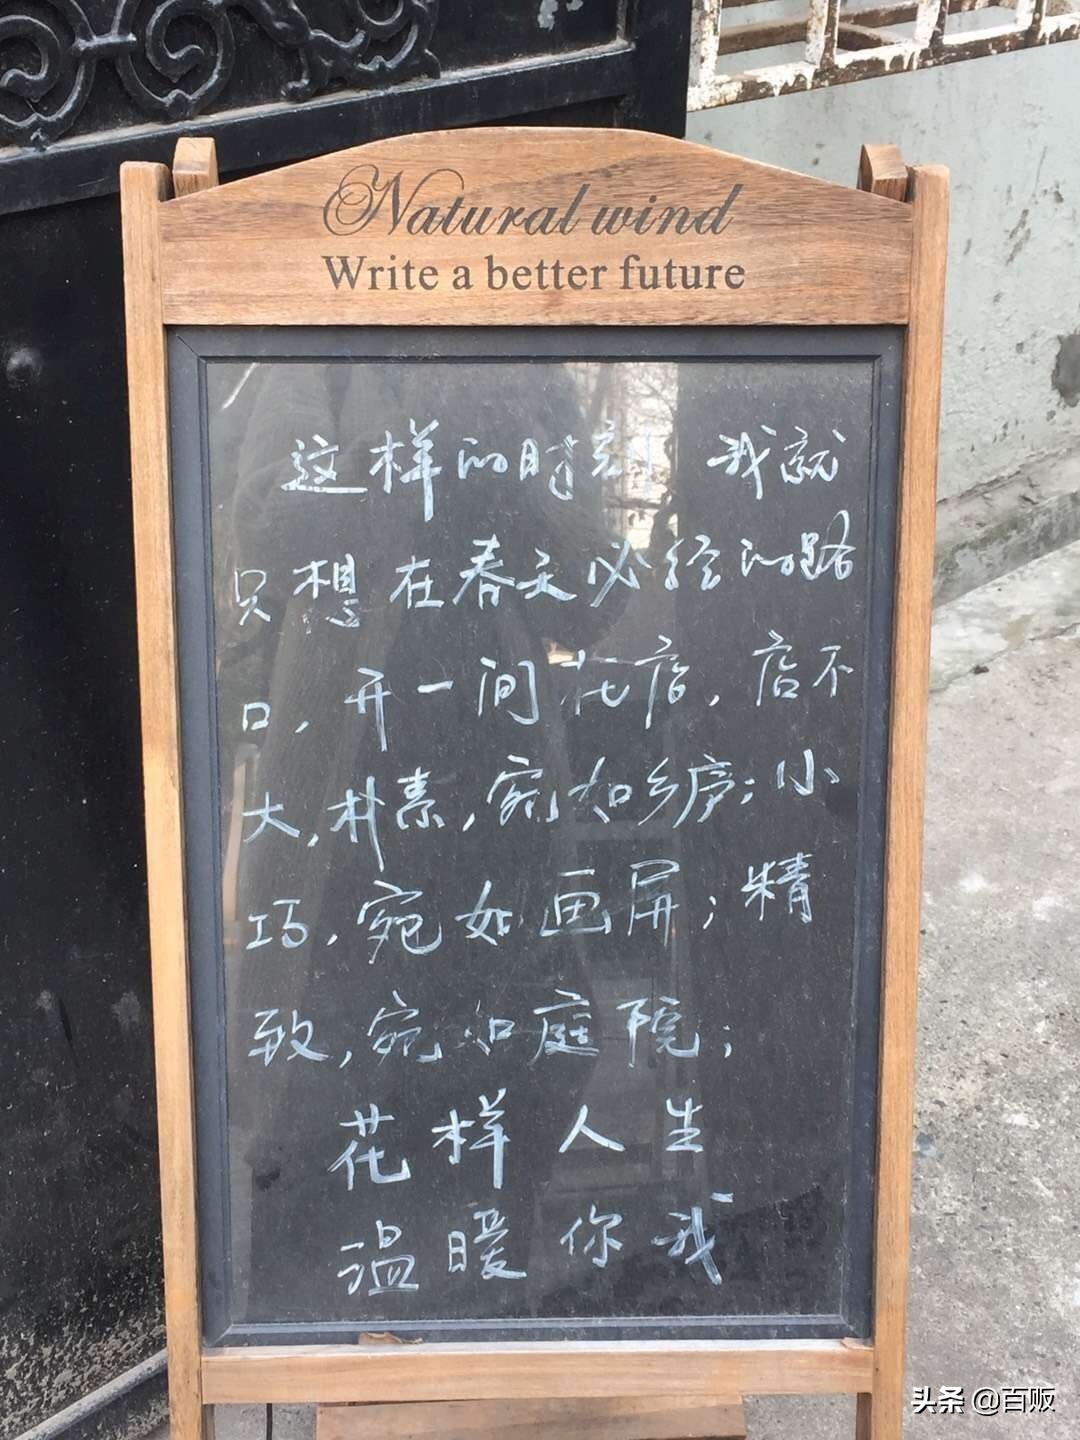 Natural wind
Write a better future
这样的时刻 我就
只想在春天必经的路
口，开一间花店，店不
大，朴素，宛如乡庐；小
巧，宛如画屏；精
致，宛如庭院；
花样人生
温暖你我
头条 @百贩